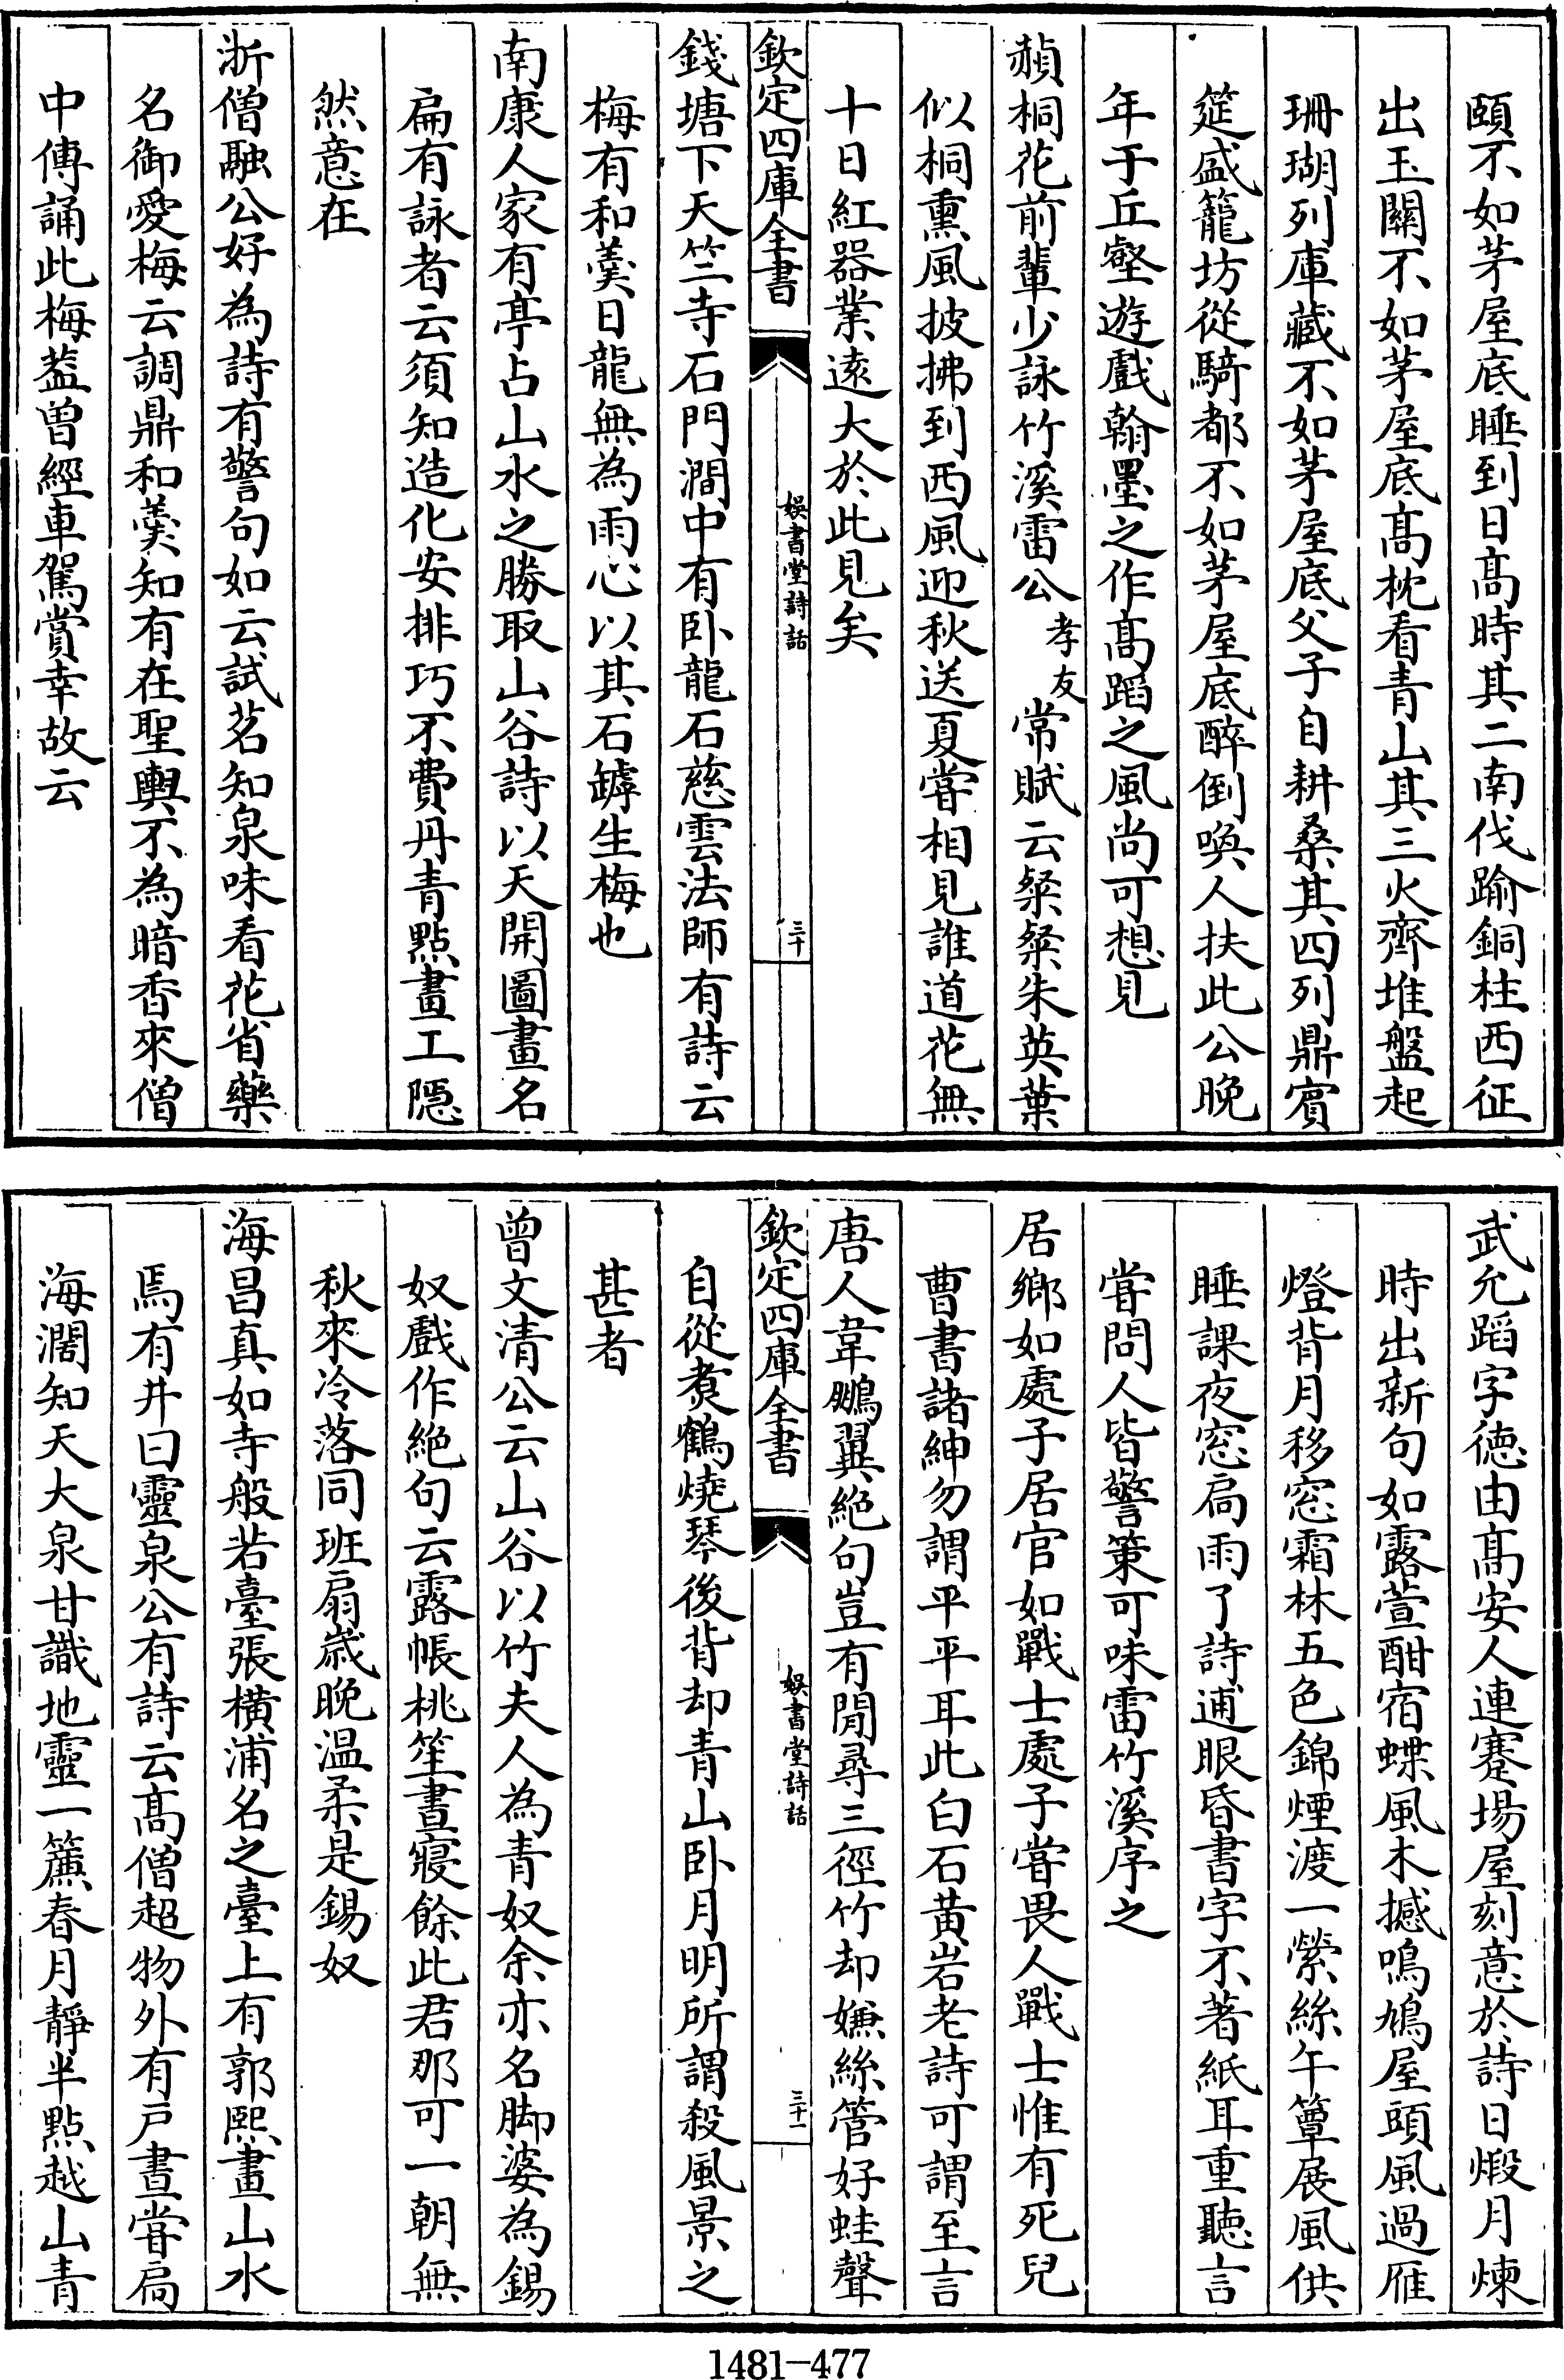 頤不如茅屋底睡到日髙時其二南伐踰銅柱西征
出玉闗不如茅屋底髙枕看青山其三火齊堆盤起
珊瑚列庫藏不如茅屋底父子自耕桑其四列鼎賔
筵盛籠坊從騎都不如茅屋底醉倒喚人扶此公晩
年于丘壑遊戲翰墨之作髙蹈之風尚可想見
赬桐花前輩少詠竹溪雷公孝友常賦云粲粲朱英葉
似桐熏風披拂到西風迎秋送夏甞相見誰道花無
十日紅器業逺大於此見矣
欽定四庫全書
娱書堂詩話
三十
錢塘下天竺寺石門澗中有卧龍石慈雲法師有詩云
梅有和羮日龍無為雨心以其石罅生梅也
南康人家有亭占山水之勝取山谷詩以天開圖畫名
扁有詠者云須知造化安排巧不費丹青點畫工隠
然意在
浙僧融公好為詩有警句如云試茗知泉味看花省藥
名御愛梅云調鼎和羮知有在聖輿不為暗香來僧
中傳誦此梅葢曽經車駕賞幸故云
武允蹈字徳由髙安人連蹇塲屋刻意於詩日煅月煉
時出新句如露萱酣宿蝶風木撼鳴鳩屋頭風過雁
燈背月移窓霜林五色錦煙渡一縈絲午簟展風供
睡課夜窓扄雨了詩逋眼昏書字不著紙耳重聽言
甞問人皆警策可味雷竹溪序之
居鄉如處子居官如戰士處子甞畏人戰士惟有死兒
曹書諸紳勿謂平平耳此白石黄岩老詩可謂至言
唐人韋鵬翼絶句豈有閒尋三徑竹却嫌絲管好蛙聲
欽定四庫全書
娱書堂詩話
三十一
自從煑鶴燒琴後背却青山卧月明所謂殺風景之
甚者
曽文清公云山谷以竹夫人為青奴余亦名脚婆為錫
奴戲作絶句云露帳桃笙晝寢餘此君那可一朝無
秋來冷落同班扇嵗晩温柔是錫奴
海昌真如寺般若臺張横浦名之臺上有郭熙畫山水
焉有井曰靈泉公有詩云髙僧超物外有戸晝甞扄
海濶知天大泉甘識地靈一簾春月靜半點越山青
1481-477